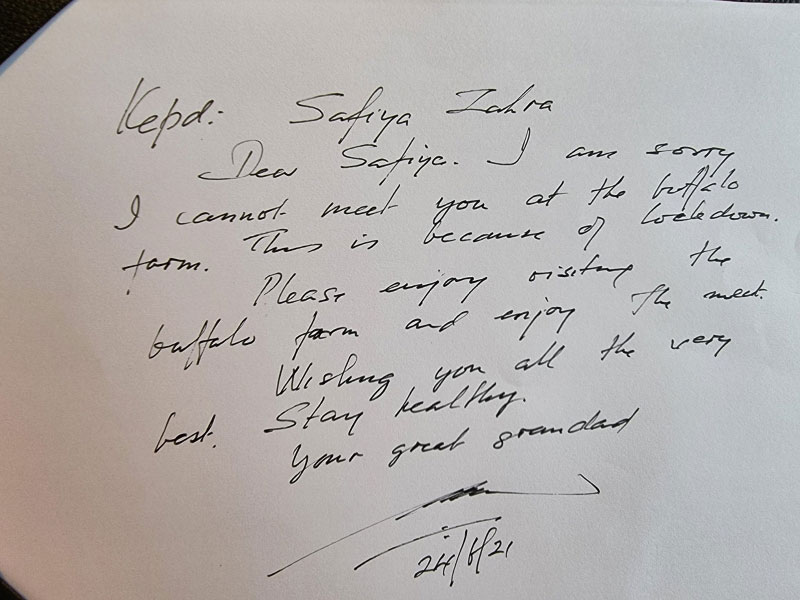 Kepd: Safiya Zahra
Dear Safiya. I am sorry
I cannot meet you at the buffalo
farm. This is because of lockdown.
Please enjoy visiting the
buffalo farm and enjoy the meat.
Wishing you all the very
best. Stay healthy.
Your great grandad
24/6/21